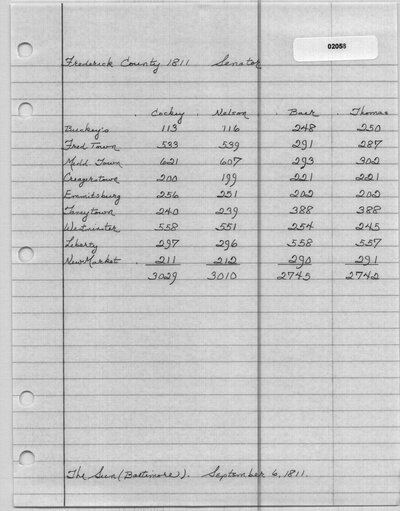 02058
Frederick County 1811 Senator
Cockey Nelson Baer Thomas
Buckey's 113 116 248 250
Fred Town 533 539 291 287
Midd Town 621 607 293 302
Creagerstown 200 199 221 221
Emmitsburg 256 251 202 202
Taneytown 240 239 388 388
Westminster 558 551 254 245
Liberty 297 296 558 557
New Market 211 212 290 291
3029 3010 2745
The Sun (Baltimore). September 6, 1811.